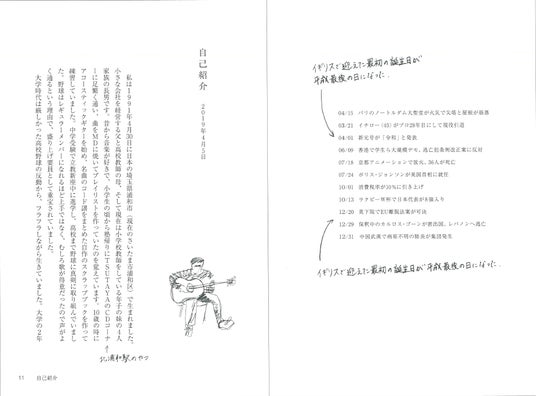 自己紹介
2019年4月5日
私は1991年4月30日に日本の埼玉県浦和市（現在のさいたま市浦和区）で生まれました。
小さな会社を経営する父と高校教師の母、そして現在は小学校教師をしている年子の妹の4人
家族の長男です。昔から音楽が好きで、小学生の頃から格帰りにTSUTAYAのCDコーナ
ーに足繁く通い、曲をMDに焼いてプレイリストを作っていたのを覚えています。10歳の時に
アコースティックギターを始め、名曲のコード譜をまとめた自作のスクラップブックを作って
練習していました。中学受験で立教新座中に進学し、高校まで野球に真剣に取り組んでいまし
た。野球はレギュラーメンバーになれるほど上手ではなく、むしろ歌が得意だったので声がよ
く通るという理由で、盛り上げ要員として重宝されていました。
大学時代は厳しかった高校野球の反動から、フラフラしながら生きていました。大学の2年
北浦和駅のやつ
11 自己紹介
イギリスで迎えた最初の誕生日が
平成最後の日になった.
04/15 パリのノートルダム大聖堂が火災で尖塔と屋根が崩落
03/21 イチロー（45）がプロ28年目にして現役引退
04/01 新元号が「令和」と発表
06/09 香港で学生ら大規模デモ、逃亡犯条例改正案に反対
07/18 京都アニメーションで放火、36人が死亡
07/24 ボリス・ジョンソンが英国首相に就任
10/01 消費税率が10%に引き上げ
10/13 ラグビーW杯で日本代表が8強入り
12/20 英下院でEU離脱法案が可決
12/29 保釈中のカルロス・ゴーンが密出国、レバノンへ逃亡
12/31 中国武漢で病原不明の肺炎が集団発生
イギリスで迎えた最初の誕生日が平成最後の日になった.